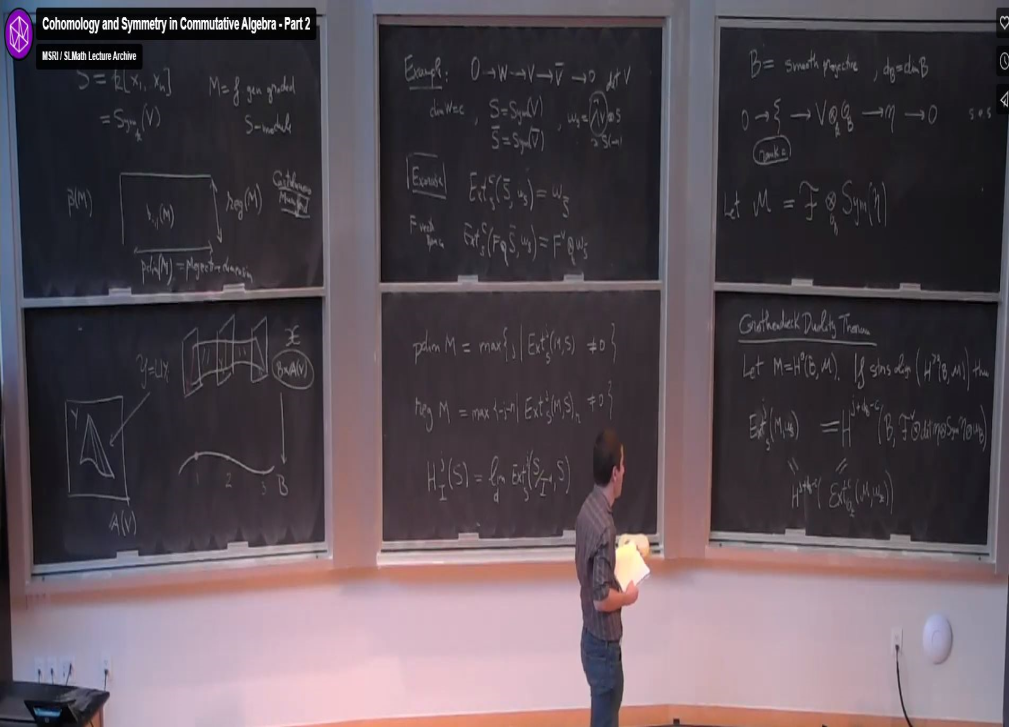 Cohomology and Symmetry in Commutative Algebra - Part 2
MSRI / SLMath Lecture Archive
S = k[x₁, ..xₙ]
= Sym_k(V)
M = f gen graded
S-module
β(M)
(M)
reg(M)
Castelnuovo
Mumford
pdim(M) = projective dimension
X
B×A(V)
Y
A(V)
1 2 3 B
Example: 0 → W → V → V̄ → 0
det V
dim W = c, S = Sym(V)
S̄ = Sym(V̄)
Exercise
Ext^c_S(S̄, ω_S) = ω_S̄
F vect space
Ext^c_S(F⊗S̄, ω_S) = F^∨ ⊗ ω_S̄
pdim M = max{ j | Ext^j_S(M,S) ≠ 0 }
reg M = max{-i-n | Ext^i_S(M,S)_n ≠ 0}
H^j_I(S) = lim_d Ext^j_S(S/I^d, S)
B = smooth projective, d_B = dim B
0 → ξ → V⊗O_B → η → 0 s e s
rank c
Let M = F ⊗ Sym(η)
Grothendieck Duality Theorem
Let M = H⁰(B, M). If
then
Ext^j_S(M, ω_S) = H^{j+d_B-c}(B, F^∨⊗det η⊗Sym η⊗ω_B)